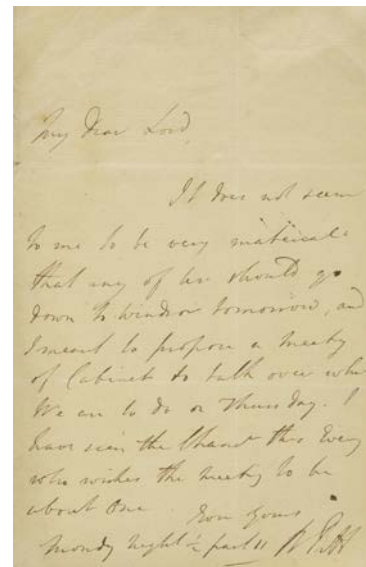 My Dear Lord,
It does not seem
to me to be very material
that any of us should go
down to Windsor tomorrow, and
I meant to propose a Meetg
of Cabinet to talk over what
We are to do on Thursday. I
have seen the Chanr this Eveg
who wishes the Meetg to be
about One
Yours
Monday Night ½ past 11 W Pitt